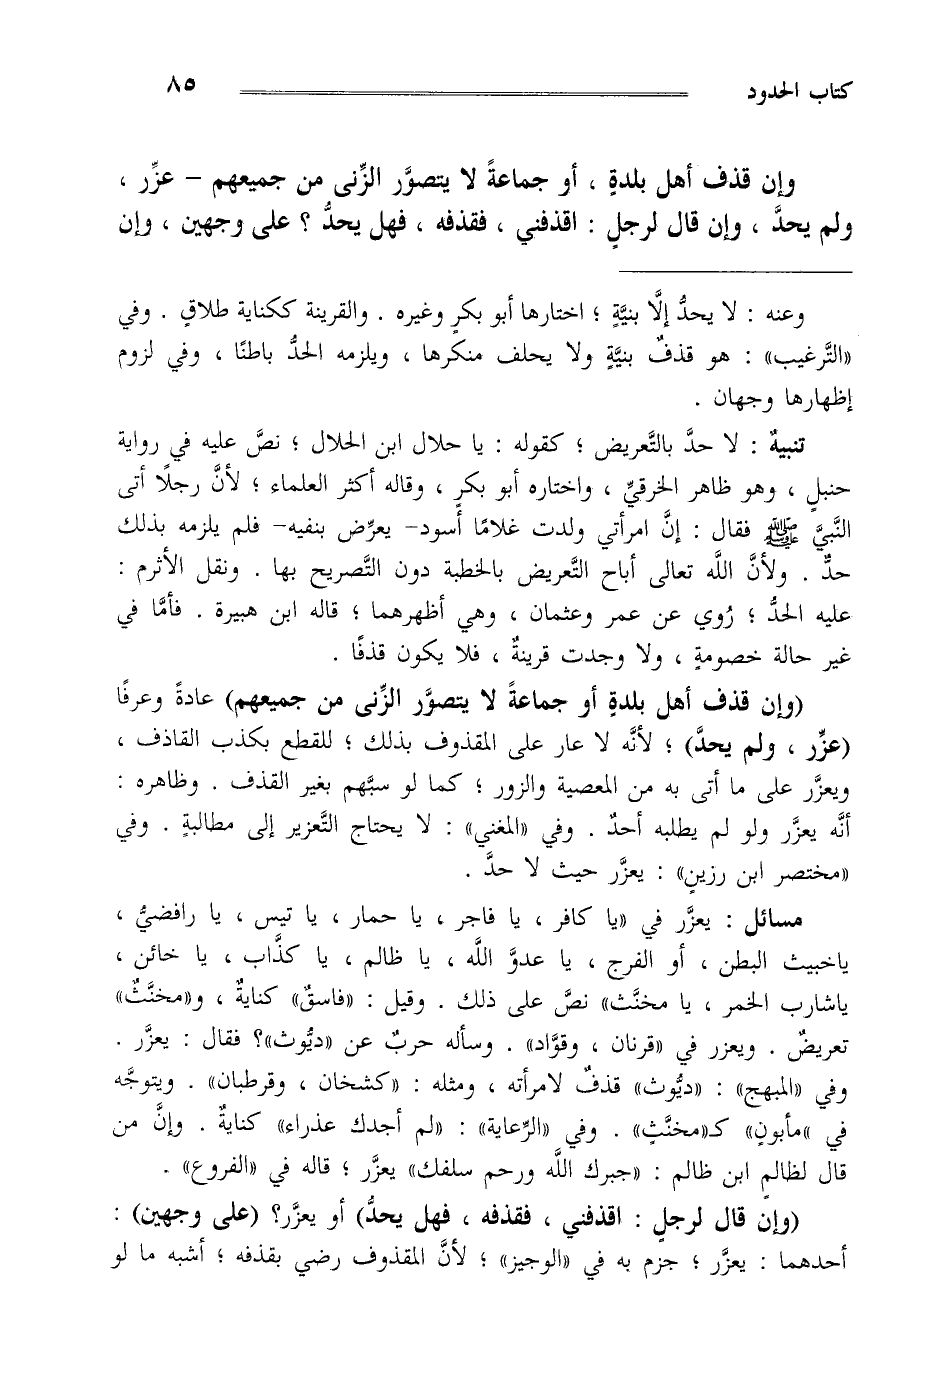 كتاب الحدود ٨٥
وإن قذف أهل بلدةٍ ، أو جماعةً لا يتصوَّر الزِّنى من جميعهم – عزِّر ،
ولم يحدَّ ، وإن قال لرجلٍ : اقذفني ، فقذفه ، فهل يحدُّ ؟ على وجهين ، وإن
وعنه : لا يحدُّ إلَّا بنيَّةٍ ؛ اختارها أبو بكرٍ وغيره . والقرينة ككناية طلاقٍ . وفي
«التَّرغيب» : هو قذفٌ بنيَّةٍ ولا يحلف منكرها ، ويلزمه الحدُّ باطنًا ، وفي لزوم
إظهارها وجهان .
تنبيهٌ : لا حدَّ بالتَّعريض ؛ كقوله : يا حلال ابن الحلال ؛ نصَّ عليه في رواية
حنبلٍ ، وهو ظاهر الخرقيِّ ، واختاره أبو بكرٍ ، وقاله أكثر العلماء ؛ لأنَّ رجلًا أتى
النَّبيَّ ﷺ فقال : إنَّ امرأتي ولدت غلامًا أسود- يعرِّض بنفيه- فلم يلزمه بذلك
حدٌّ . ولأنَّ اللَّه تعالى أباح التَّعريض بالخطبة دون التَّصريح بها . ونقل الأثرم :
عليه الحدُّ ؛ رُوي عن عمر وعثمان ، وهي أظهرهما ؛ قاله ابن هبيرة . فأمَّا في
غير حالة خصومةٍ ، ولا وجدت قرينةٌ ، فلا يكون قذفًا .
(وإن قذف أهل بلدةٍ أو جماعةً لا يتصوَّر الزِّنى من جميعهم) عادةً وعرفًا
(عزِّر ، ولم يحدَّ) ؛ لأنَّه لا عار على المقذوف بذلك ؛ للقطع بكذب القاذف ،
ويعزَّر على ما أتى به من المعصية والزور ؛ كما لو سبَّهم بغير القذف . وظاهره :
أنَّه يعزَّر ولو لم يطلبه أحدٌ . وفي «المغني» : لا يحتاج التَّعزير إلى مطالبةٍ . وفي
«مختصر ابن رزينٍ» : يعزَّر حيث لا حدَّ .
مسائل : يعزَّر في «يا كافر ، يا فاجر ، يا حمار ، يا تيس ، يا رافضيُّ ،
ياخبيث البطن ، أو الفرج ، يا عدوَّ اللَّه ، يا ظالم ، يا كذَّاب ، يا خائن ،
ياشارب الخمر ، يا مخنَّث» نصَّ على ذلك . وقيل : «فاسقٌ» كنايةٌ ، و«مخنَّثٌ»
تعريضٌ . ويعزر في «قرنان ، وقوَّاد» . وسأله حربٌ عن «ديُّوث»؟ فقال : يعزَّر .
وفي «المبهج» : «ديُّوث» قذفٌ لامرأته ، ومثله : «كشخان ، وقرطبان» . ويتوجَّه
في «مأبونٍ» كـ«مخنَّثٍ» . وفي «الرِّعاية» : «لم أجدك عذراء» كنايةٌ . وإنَّ من
قال لظالمٍ ابن ظالم : «جبرك اللَّه ورحم سلفك» يعزَّر ؛ قاله في «الفروع» .
(وإن قال لرجلٍ : اقذفني ، فقذفه ، فهل يحدُّ) أو يعزَّر؟ (على وجهين) :
أحدهما : يعزَّر ؛ جزم به في «الوجيز» ؛ لأنَّ المقذوف رضي بقذفه ؛ أشبه ما لو